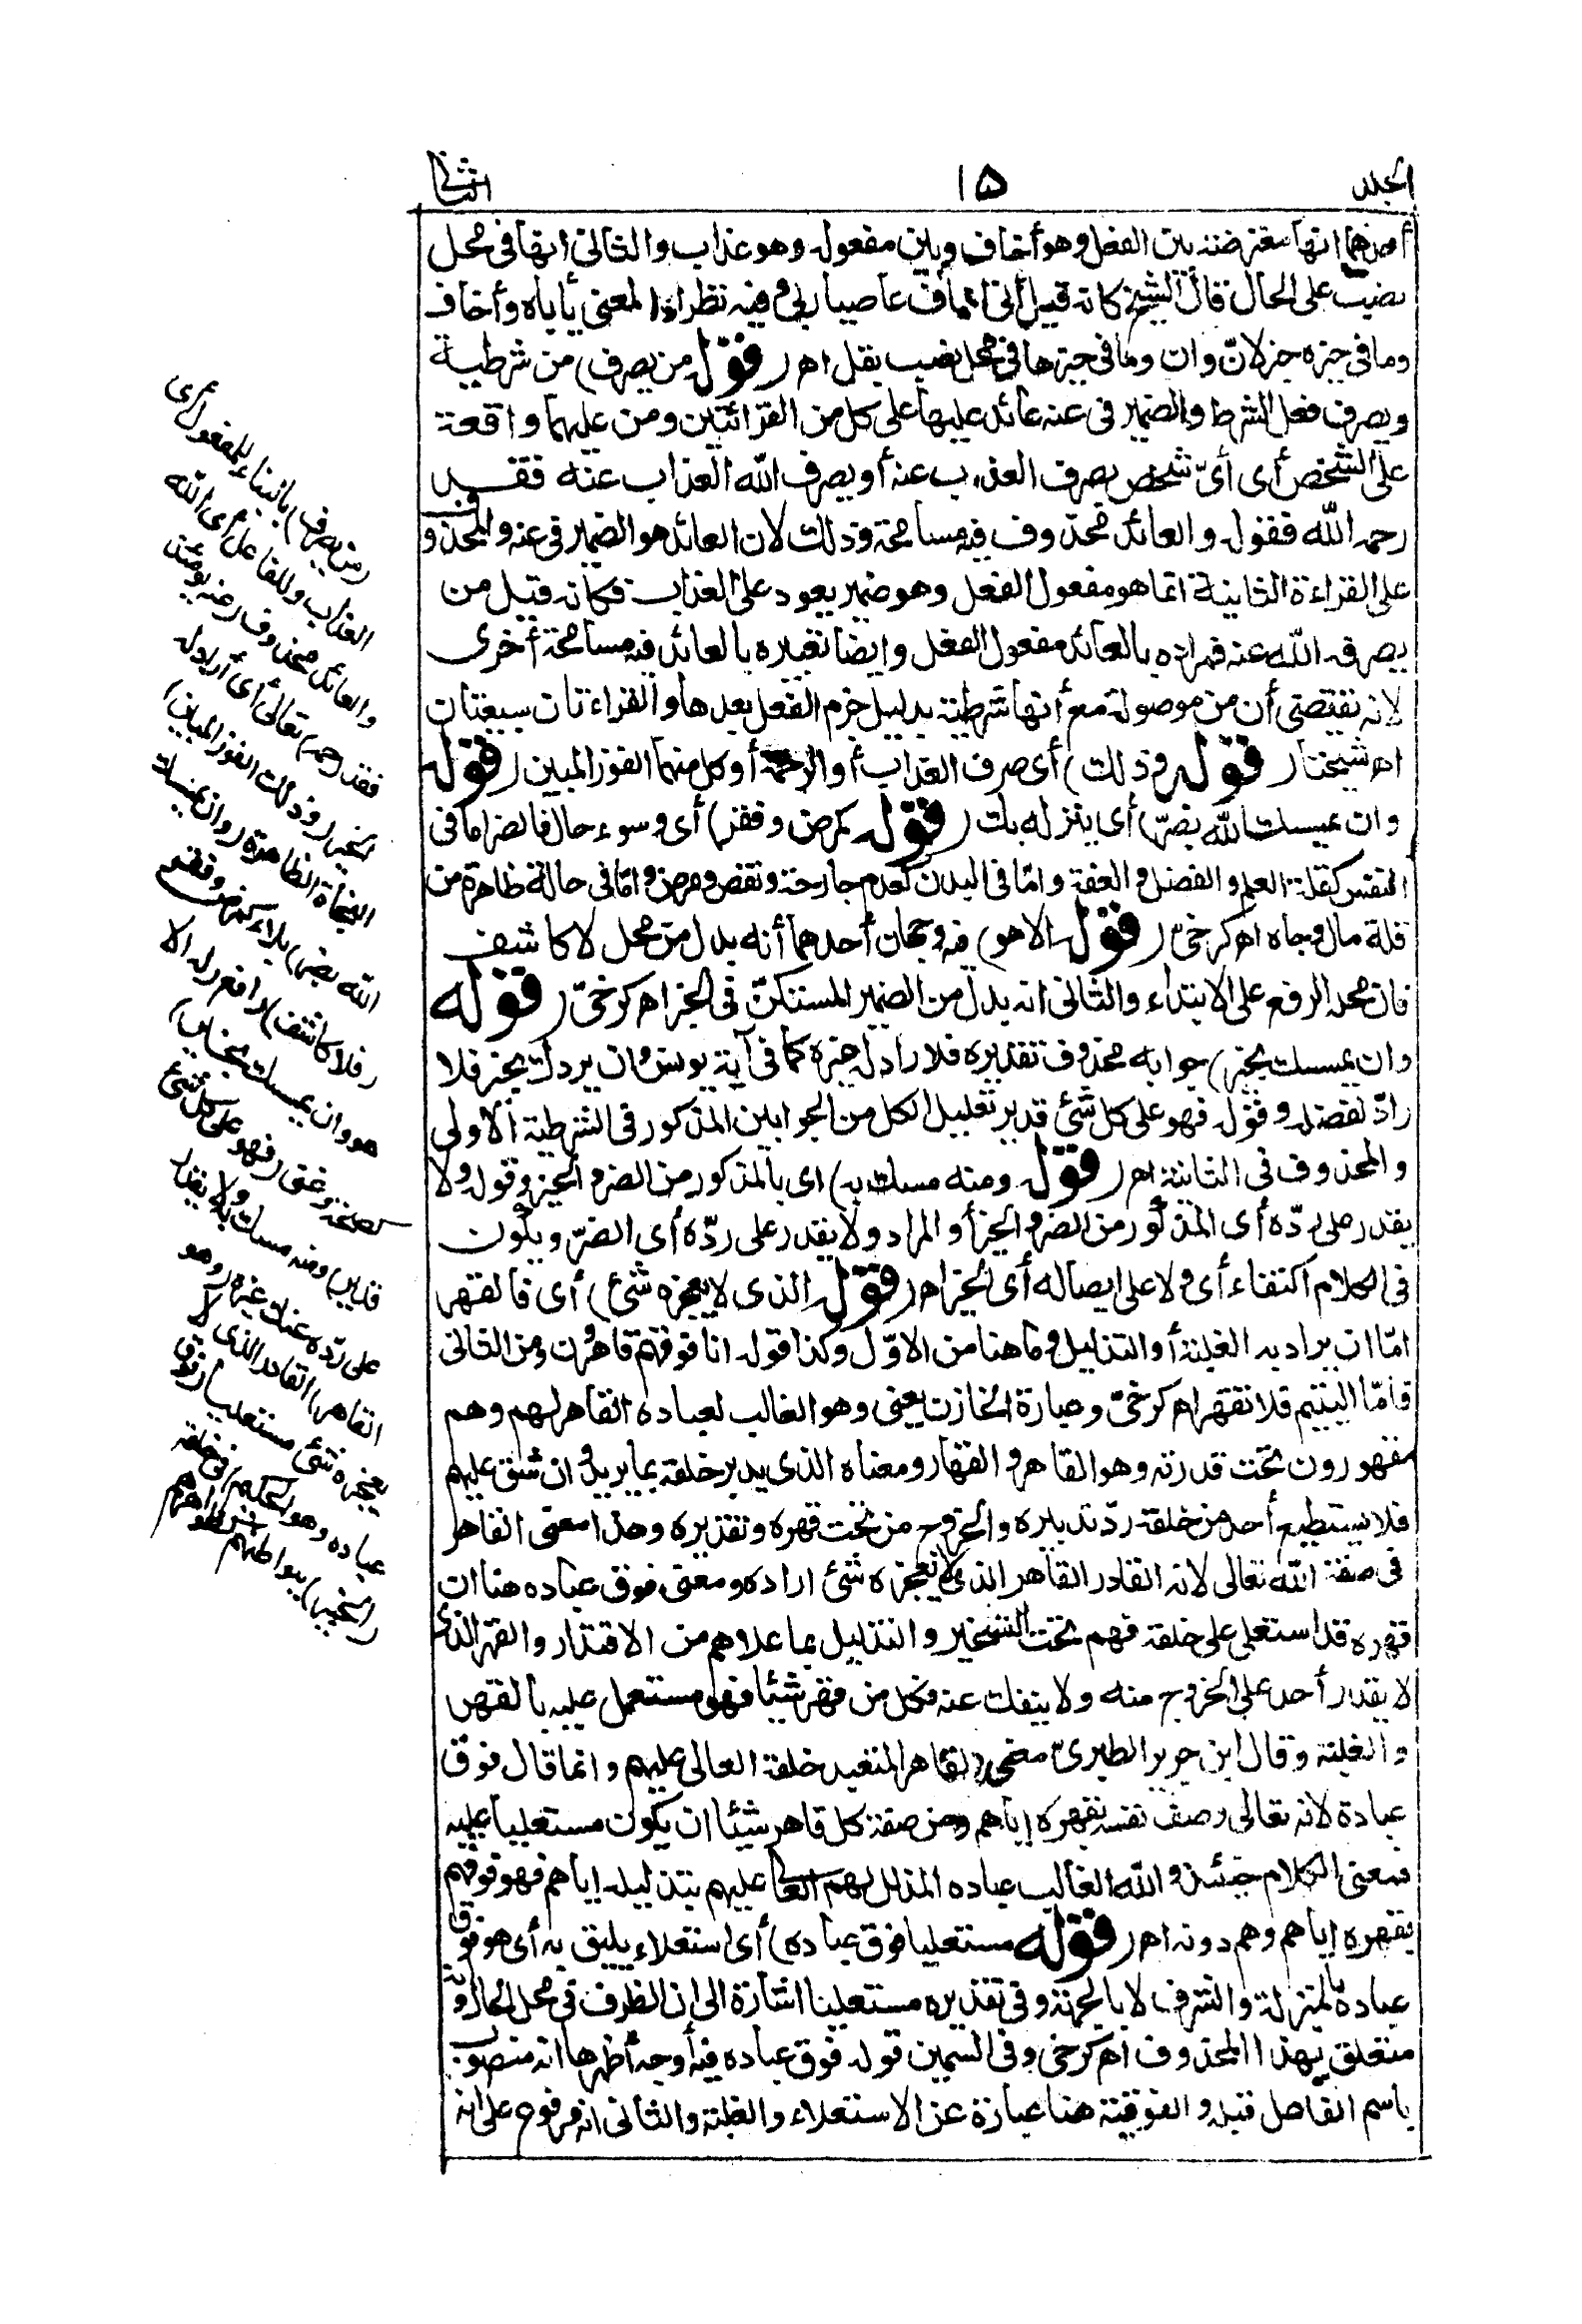 الجلد ١٥ الثانى
أحدهما انها معترضة بين الفعل وهو أخاف وبين مفعوله وهو عذاب والثانى انها فى محل
نصب على الحال قال الشيخ كانه قيل أنى أخاف عاصيا ربى وفيه نظر اذ المعنى يأباه وأخاف
وما فى حيزه خبر لانّ وان وما فى حيزها فى محل نصب بقل اهـ (قوله من يصرف) من شرطية
ويصرف فعل الشرط والضمير فى عنه عائد عليها على كل من القرائتين ومن عليهما واقعة
على الشخص أى أىّ شخص يصرف العذاب عنه أو يصرف الله العذاب عنه فقد
رحمه الله فقوله والعائد محذوف فيه مسامحة وذلك لان العائد هو الضمير فى عنه والمحذوف
على القراءة الثانية انما هو مفعول الفعل وهو ضمير يعود على العذاب فكانه قيل من
يصرفه الله عنه فمراده بالعائد مفعول الفعل وايضا تعبيره بالعائد فيه مسامحة أخرى
لانه يقتضى أن من موصولة مع أنها شرطية بدليل جزم الفعل بعدها والقراءتان سبعيتان
اهـ شيخنا (قوله وذلك) أى صرف العذاب أو الرحمة أو كل منهما الفوز المبين (قوله
وان يمسسك الله بضرّ) أى ينزله بك (قوله كمرض وفقر) أى وسوء حال فالضر اما فى
النفس كقلة العلم والفضل والعفة واما فى البدن كعدم جارحة ونقص ومرض واما فى حالة ظاهرة من
قلة مال وجاه اهـ كرخىّ (قوله الا هو) فيه وجهان أحدهما أنه بدل من محل لا كاشف
فان محله الرفع على الابتداء والثانى انه بدل من الضمير المستكنّ فى الخبر اهـ كرخىّ (قوله
وان يمسسك بخير) جوابه محذوف تقديره فلا راد له غيره كما فى آية يونس وان يردك بخير فلا
رادّ لفضله وقوله فهو على كل شئ قدير تعليل لكل من الجوابين المذكور فى الشرطية الاولى
والمحذوف فى الثانية اهـ (قوله ومنه مسك به) اى بالمذكور من الضر والخير وقوله ولا
يقدر على ردّه أى المذكور من الضر والخير أو المراد ولا يقدر على ردّه أى الضرّ ويكون
فى الكلام اكتفاء أى ولا على ايصاله أى الخير اهـ (قوله الذى لا يعجزه شئ) أى فالقهر
امّا ان يراد به الغلبة أو التذليل وما هنا من الاوّل وكذا قوله انا فوقهم قاهرون ومن الثانى
فأمّا اليتيم فلا تقهر اهـ كرخىّ وعبارة الخازن يعنى وهو الغالب لعباده القاهر لهم وهم
مقهورون تحت قدرته وهو القاهر والقهار ومعناه الذى يدبر خلقه بما يريد وان شق عليهم
فلا يستطيع أحد من خلقه ردّ تدبيره والخروج من تحت قهره وتقديره وهذا معنى القاهر
فى صفة الله تعالى لانه القادر القاهر الذى لا يعجزه شئ اراده ومعنى فوق عباده هنا ان
قهره قد استعلى على خلقه فهم تحت التسخير والتذليل بما علاهم من الاقتدار والقهر الذى
لا يقدر أحد على الخروج منه ولا ينفك عنه فكل من قهر شيئا فهو مستعل عليه بالقهر
والغلبة وقال ابن جرير الطبرىّ معنى القاهر المتعبد خلقه العالى عليهم وانما قال فوق
عباده لانه تعالى وصف نفسه بقهره إياهم ومن صفة كل قاهر شيئا ان يكون مستعليا عليه
فمعنى الكلام حينئذ والله الغالب عباده المذلل لهم العالى عليهم بتذليله إياهم فهو فوقهم
بقهره إياهم وهم دونه اهـ (قوله مستعليا فوق عباده) أى استعلاء يليق به أى هو فوق
عباده بالمنزلة والشرف لا بالجهة وفى تقديره مستعليا اشارة الى ان الظرف فى محل الحال وانه
متعلق بهذا المحذوف اهـ كرخى وفى السمين قوله فوق عباده فيه أوجه أظهرها انه منصوب
باسم الفاعل قبله والفوقية هنا عبارة عن الاستعلاء والغلبة والثانى انه مرفوع على انه
(من يصرف) بالبناء للمفعول أى
العذاب وللفاعل أى الله
والعائد محذوف (عنه يومئذ
فقد رحمه) تعالى أى أراد له
الخير (وذلك الفوز المبين)
النجاة الظاهرة (وان يمسسك
الله بضر) بلاء كمرض وفقر
(فلا كاشف) رافع (له الا
هو وان يمسسك بخير)
كصحة وغنى (فهو على كل شئ
قدير) ومنه مسك به ولا يقدر
على ردّه عنك غيره (وهو
القاهر) القادر الذى لا
يعجزه شئ مستعليا (فوق
عباده وهو الحكيم) فى خلقه
(الخبير) ببواطنهم كظواهرهم